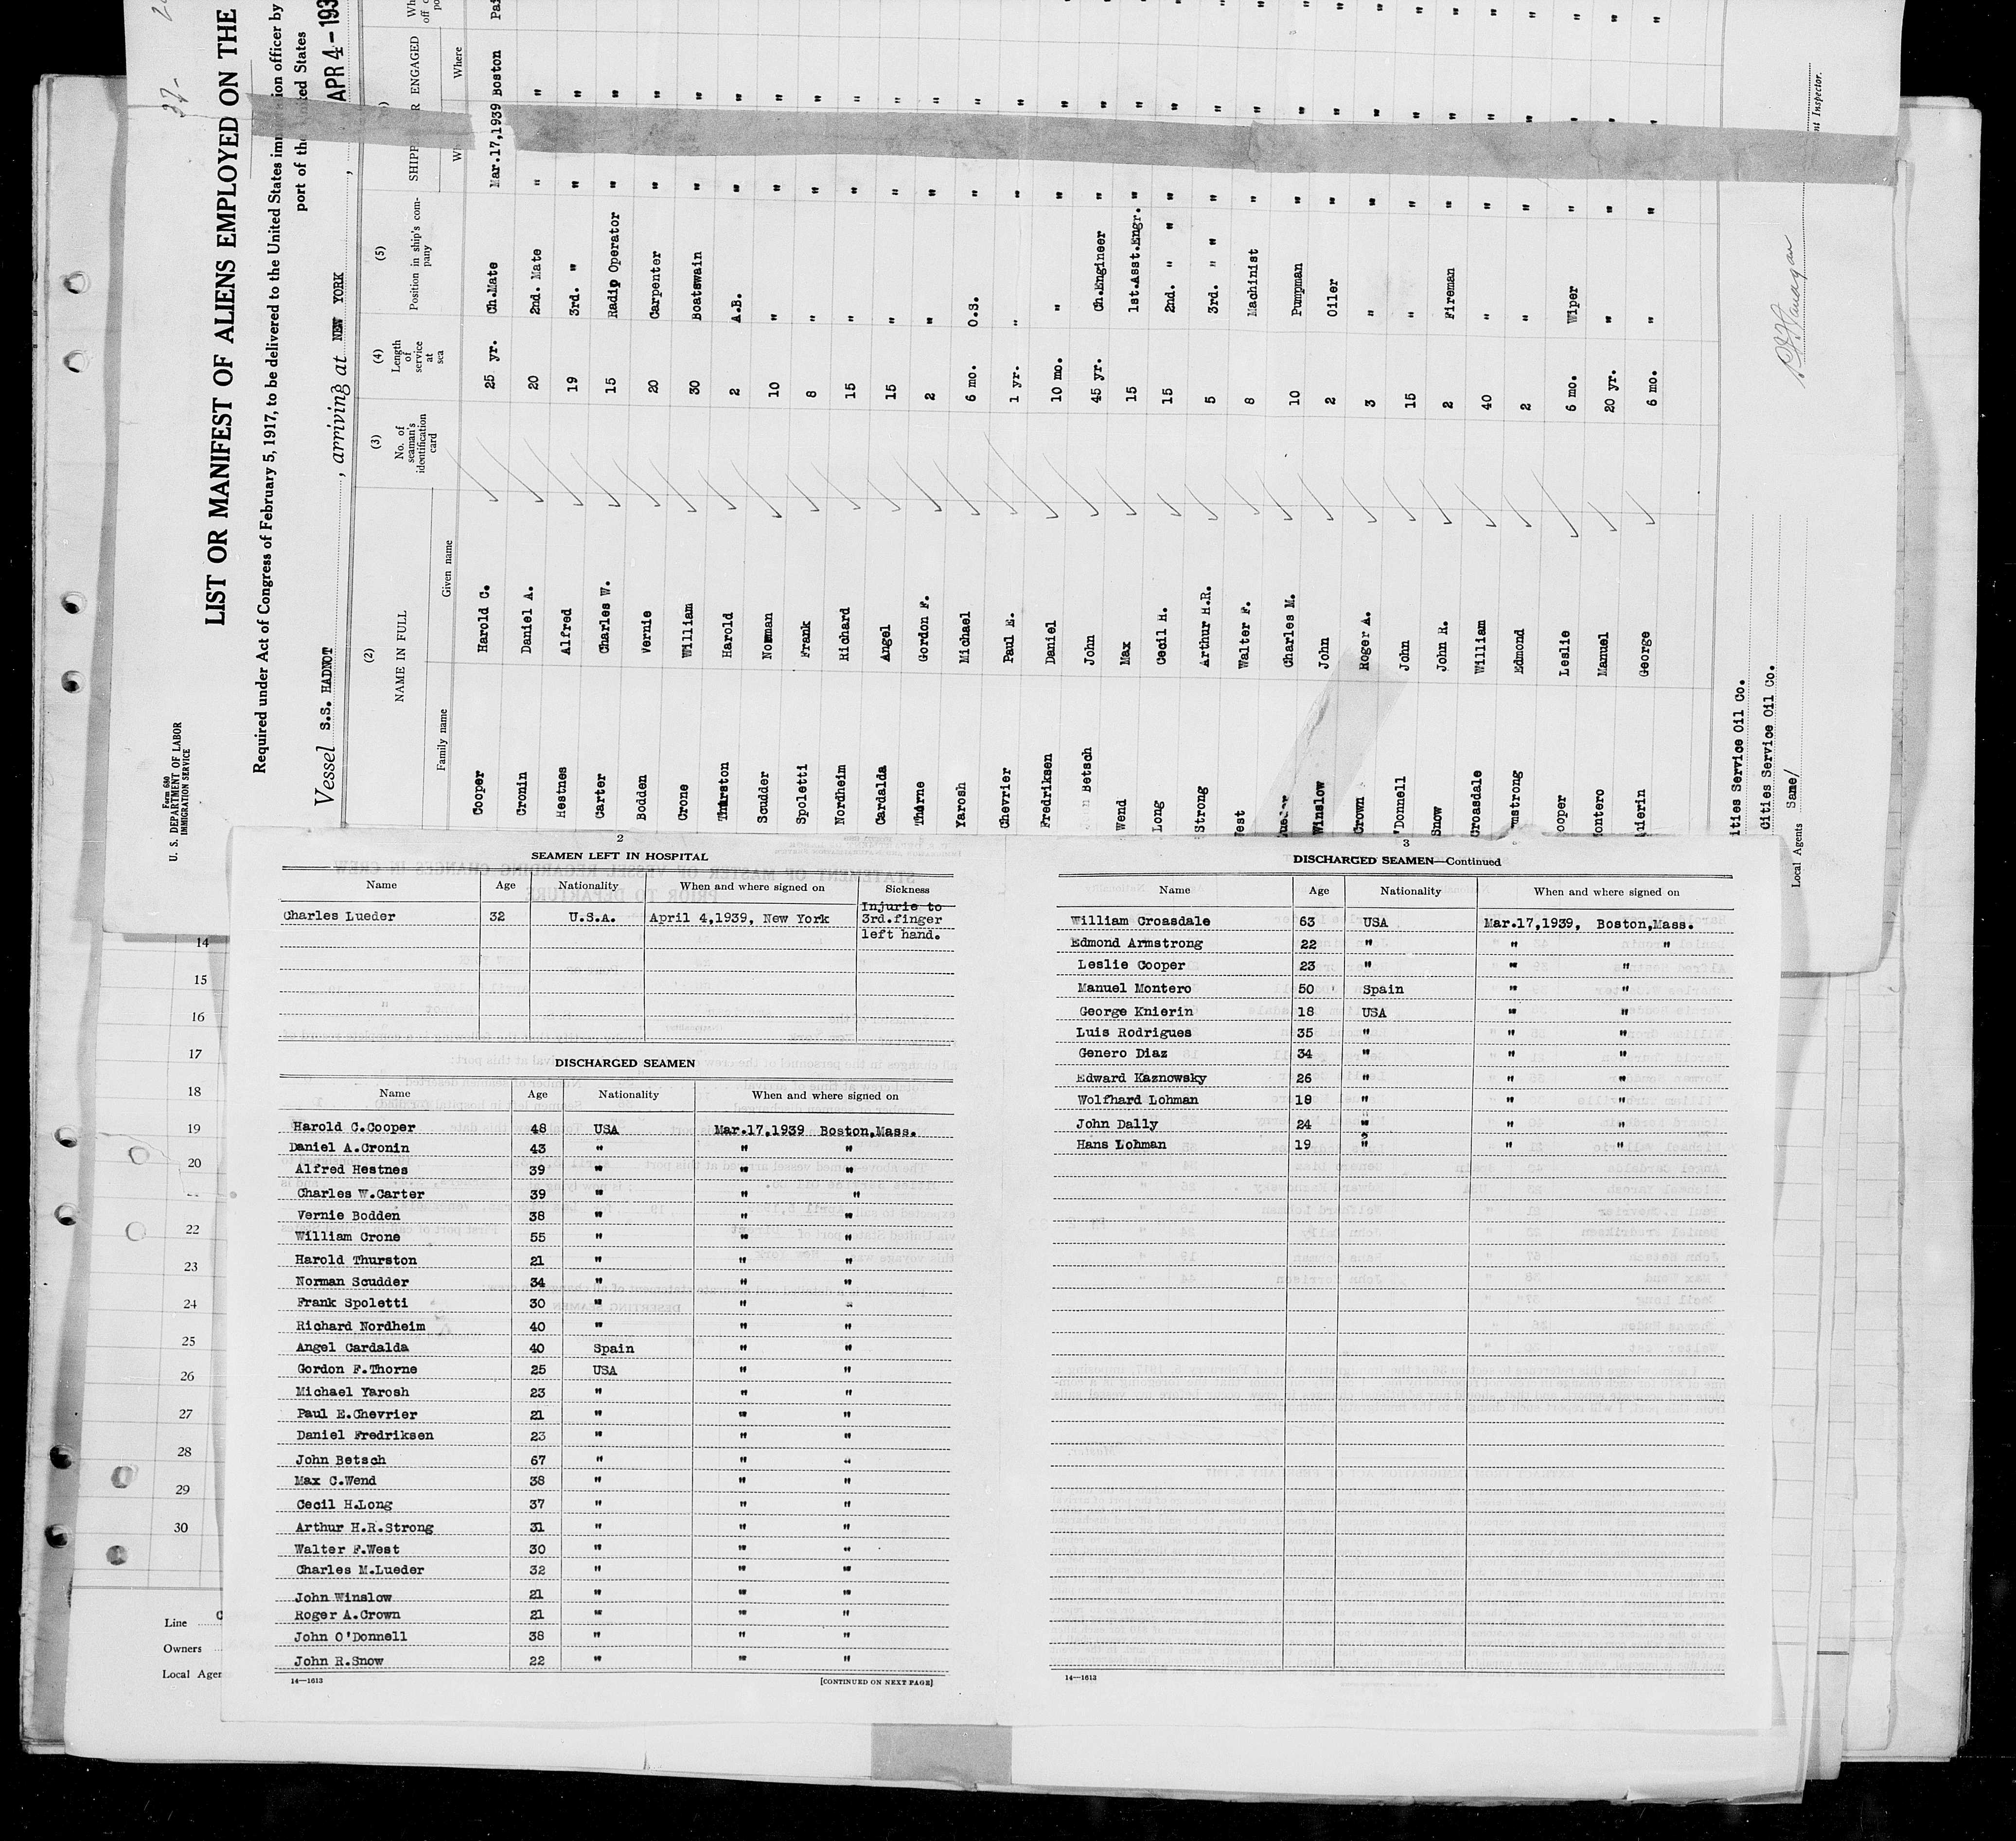 Form 680
U. S. DEPARTMENT OF LABOR
IMMIGRATION SERVICE
LIST OR MANIFEST OF ALIENS EMPLOYED ON THE
Required under Act of Congress of February 5, 1917, to be delivered to the United States immigration officer by
port of the United States
Vessel S.S. HADNOT , arriving at NEW YORK , APR 4 - 193
(2) (3) (4) (5)
NAME IN FULL No. of seaman's identification card Length of service at sea Position in ship's company SHIPPED OR ENGAGED
Family name Given name Where
Cooper Harold C. 25 yr. Ch.Mate Mar.17,1939 Boston
Cronin Daniel A. 20 2nd. Mate " "
Hestnes Alfred 19 3rd. " " "
Carter Charles W. 15 Radio Operator " "
Bodden Vernie 20 Carpenter " "
Crone William 30 Boatswain " "
Thurston Harold 2 A.B. " "
Scudder Norman 10 " " "
Spoletti Frank 8 " " "
Nordheim Richard 15 " " "
Cardalda Angel 15 " " "
Thorne Gordon F. 2 " " "
Yarosh Michael 6 mo. O.S. " "
Chevrier Paul E. 1 yr. " " "
Fredriksen Daniel 10 mo. " " "
Betsch John 45 yr. Ch.Engineer " "
Wend Max 15 1st.Asst.Engr. " "
Long Cecil H. 15 2nd. " " " "
Strong Arthur H.R. 5 3rd. " " " "
West Walter F. 8 Machinist " "
Charles M. 10 Pumpman " "
Winslow John 2 Oiler " "
Crown Roger A. 3 " " "
'Donnell John 15 " " "
Snow John R. 2 Fireman " "
Croasdale William 40 " " "
mstrong Edmond 2 " " "
ooper Leslie 6 mo. Wiper " "
ontero Manuel 20 yr. " " "
nierin George 6 mo. " " "
ities Service Oil Co.
Cities Service Oil Co.
Local Agents Same/
nt Inspector.
14
15
16
17
18
19
20
22
23
24
25
26
27
28
29
30
Line
Owners
Local Agen
2
SEAMEN LEFT IN HOSPITAL
Name Age Nationality When and where signed on Sickness
Charles Lueder 32 U.S.A. April 4,1939, New York Injurie to
3rd.finger
left hand.
DISCHARGED SEAMEN
Name Age Nationality When and where signed on
Harold C.Cooper 48 USA Mar.17,1939 Boston,Mass.
Daniel A.Cronin 43 " " "
Alfred Hestnes 39 " " "
Charles W.Carter 39 " " "
Vernie Bodden 38 " " "
William Crone 55 " " "
Harold Thurston 21 " " "
Norman Scudder 34 " " "
Frank Spoletti 30 " " "
Richard Nordheim 40 " " "
Angel Cardalda 40 Spain " "
Gordon F.Thorne 25 USA " "
Michael Yarosh 23 " " "
Paul E.Chevrier 21 " " "
Daniel Fredriksen 23 " " "
John Betsch 67 " " "
Max C.Wend 38 " " "
Cecil H.Long 37 " " "
Arthur H.R.Strong 31 " " "
Walter F.West 30 " " "
Charles M.Lueder 32 " " "
John Winslow 21 " " "
Roger A.Crown 21 " " "
John O'Donnell 38 " " "
John R.Snow 22 " " "
14—1613 [CONTINUED ON NEXT PAGE]
3
DISCHARGED SEAMEN—Continued
Name Age Nationality When and where signed on
William Croasdale 63 USA Mar.17,1939, Boston,Mass.
Edmond Armstrong 22 " " "
Leslie Cooper 23 " " "
Manuel Montero 50 Spain " "
George Knierin 18 USA " "
Luis Rodrigues 35 " " "
Genero Diaz 34 " " "
Edward Kaznowsky 26 " " "
Wolfhard Lohman 18 " " "
John Dally 24 " " "
Hans Lohman 19 " " "
14—1613